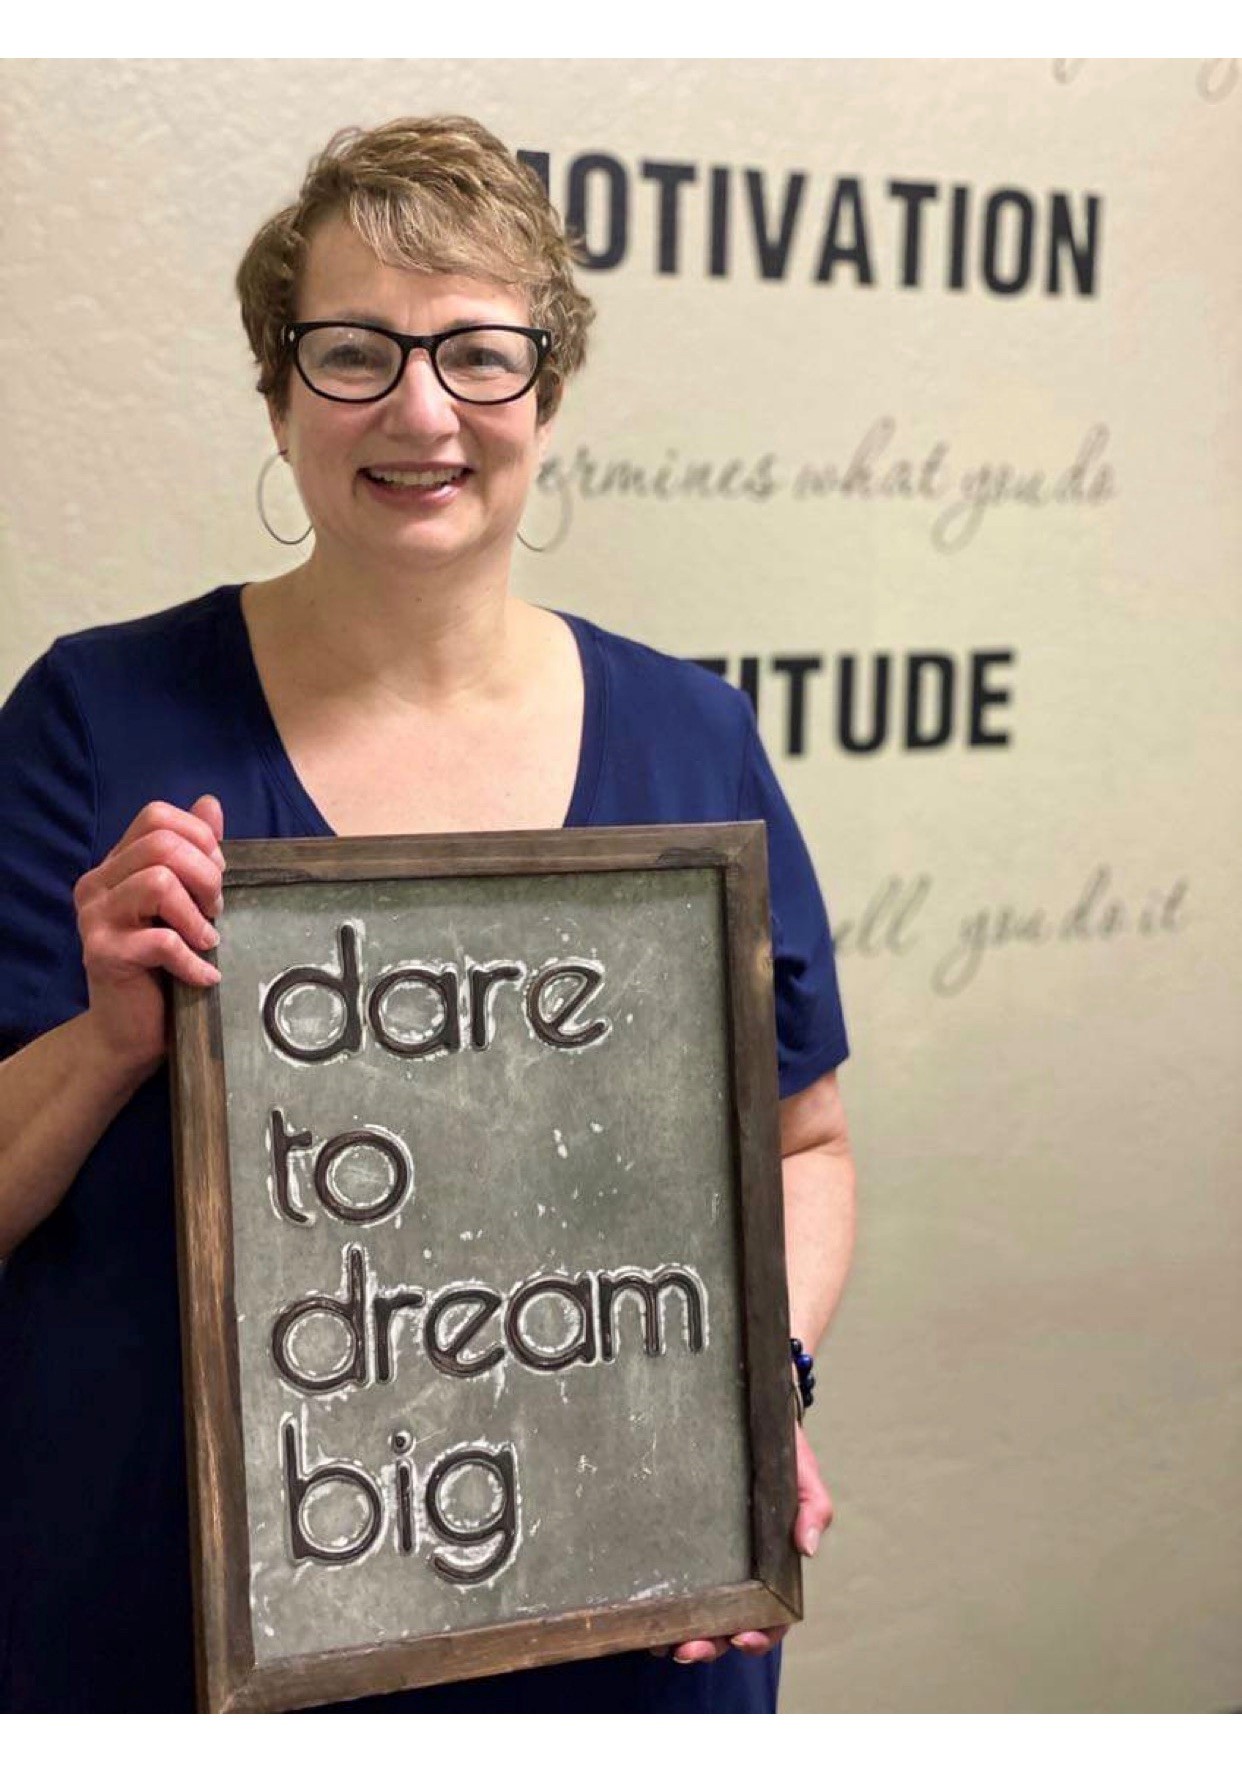 MOTIVATION
ermines what you do
TITUDE
ell you do it
dare
to
dream
big